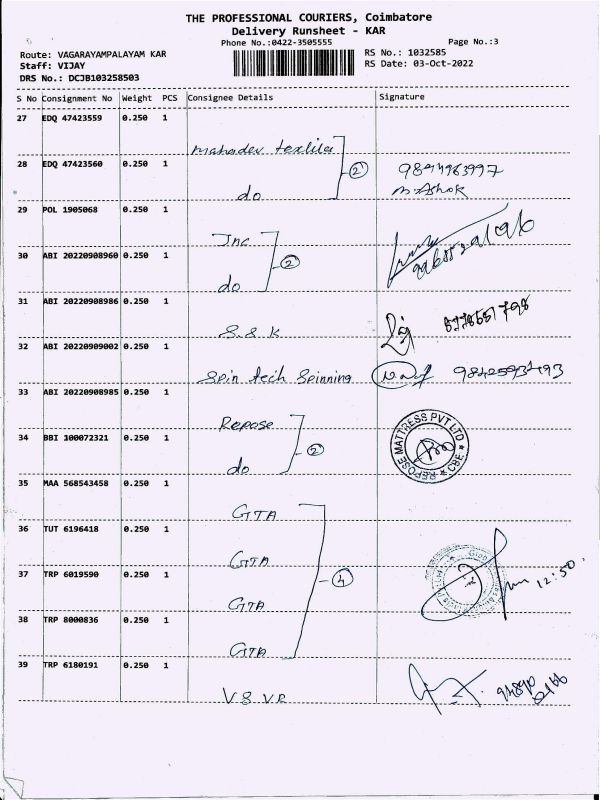 THE PROFESSIONAL COURIERS, Coimbatore
Delivery Runsheet - KAR
Phone No.:0422-3505555 Page No.:3
Route: VAGARAYAMPALAYAM KAR RS No.: 1032585
Staff: VIJAY RS Date: 03-Oct-2022
DRS No.: DCJB103258503
S No Consignment No Weight PCS Consignee Details Signature
27 EDQ 47423559 0.250 1
Mahadev textiles
28 EDQ 47423560 0.250 1 2 9894963997
do M. Ashok
29 POL 1905068 0.250 1
Jnc
30 ABI 20220908960 0.250 1 2
do
31 ABI 20220908986 0.250 1
S.S.K
32 ABI 20220909002 0.250 1
Spin tech Spinning
33 ABI 20220908985 0.250 1
Repose
34 BBI 100072321 0.250 1 2 REPOSE MATTRESS PVT LTD * CBE *
do
35 MAA 568543458 0.250 1
GTA
36 TUT 6196418 0.250 1
GTA
37 TRP 6019590 0.250 1 4 12:50
GTA
38 TRP 8000836 0.250 1
GTA
39 TRP 6180191 0.250 1